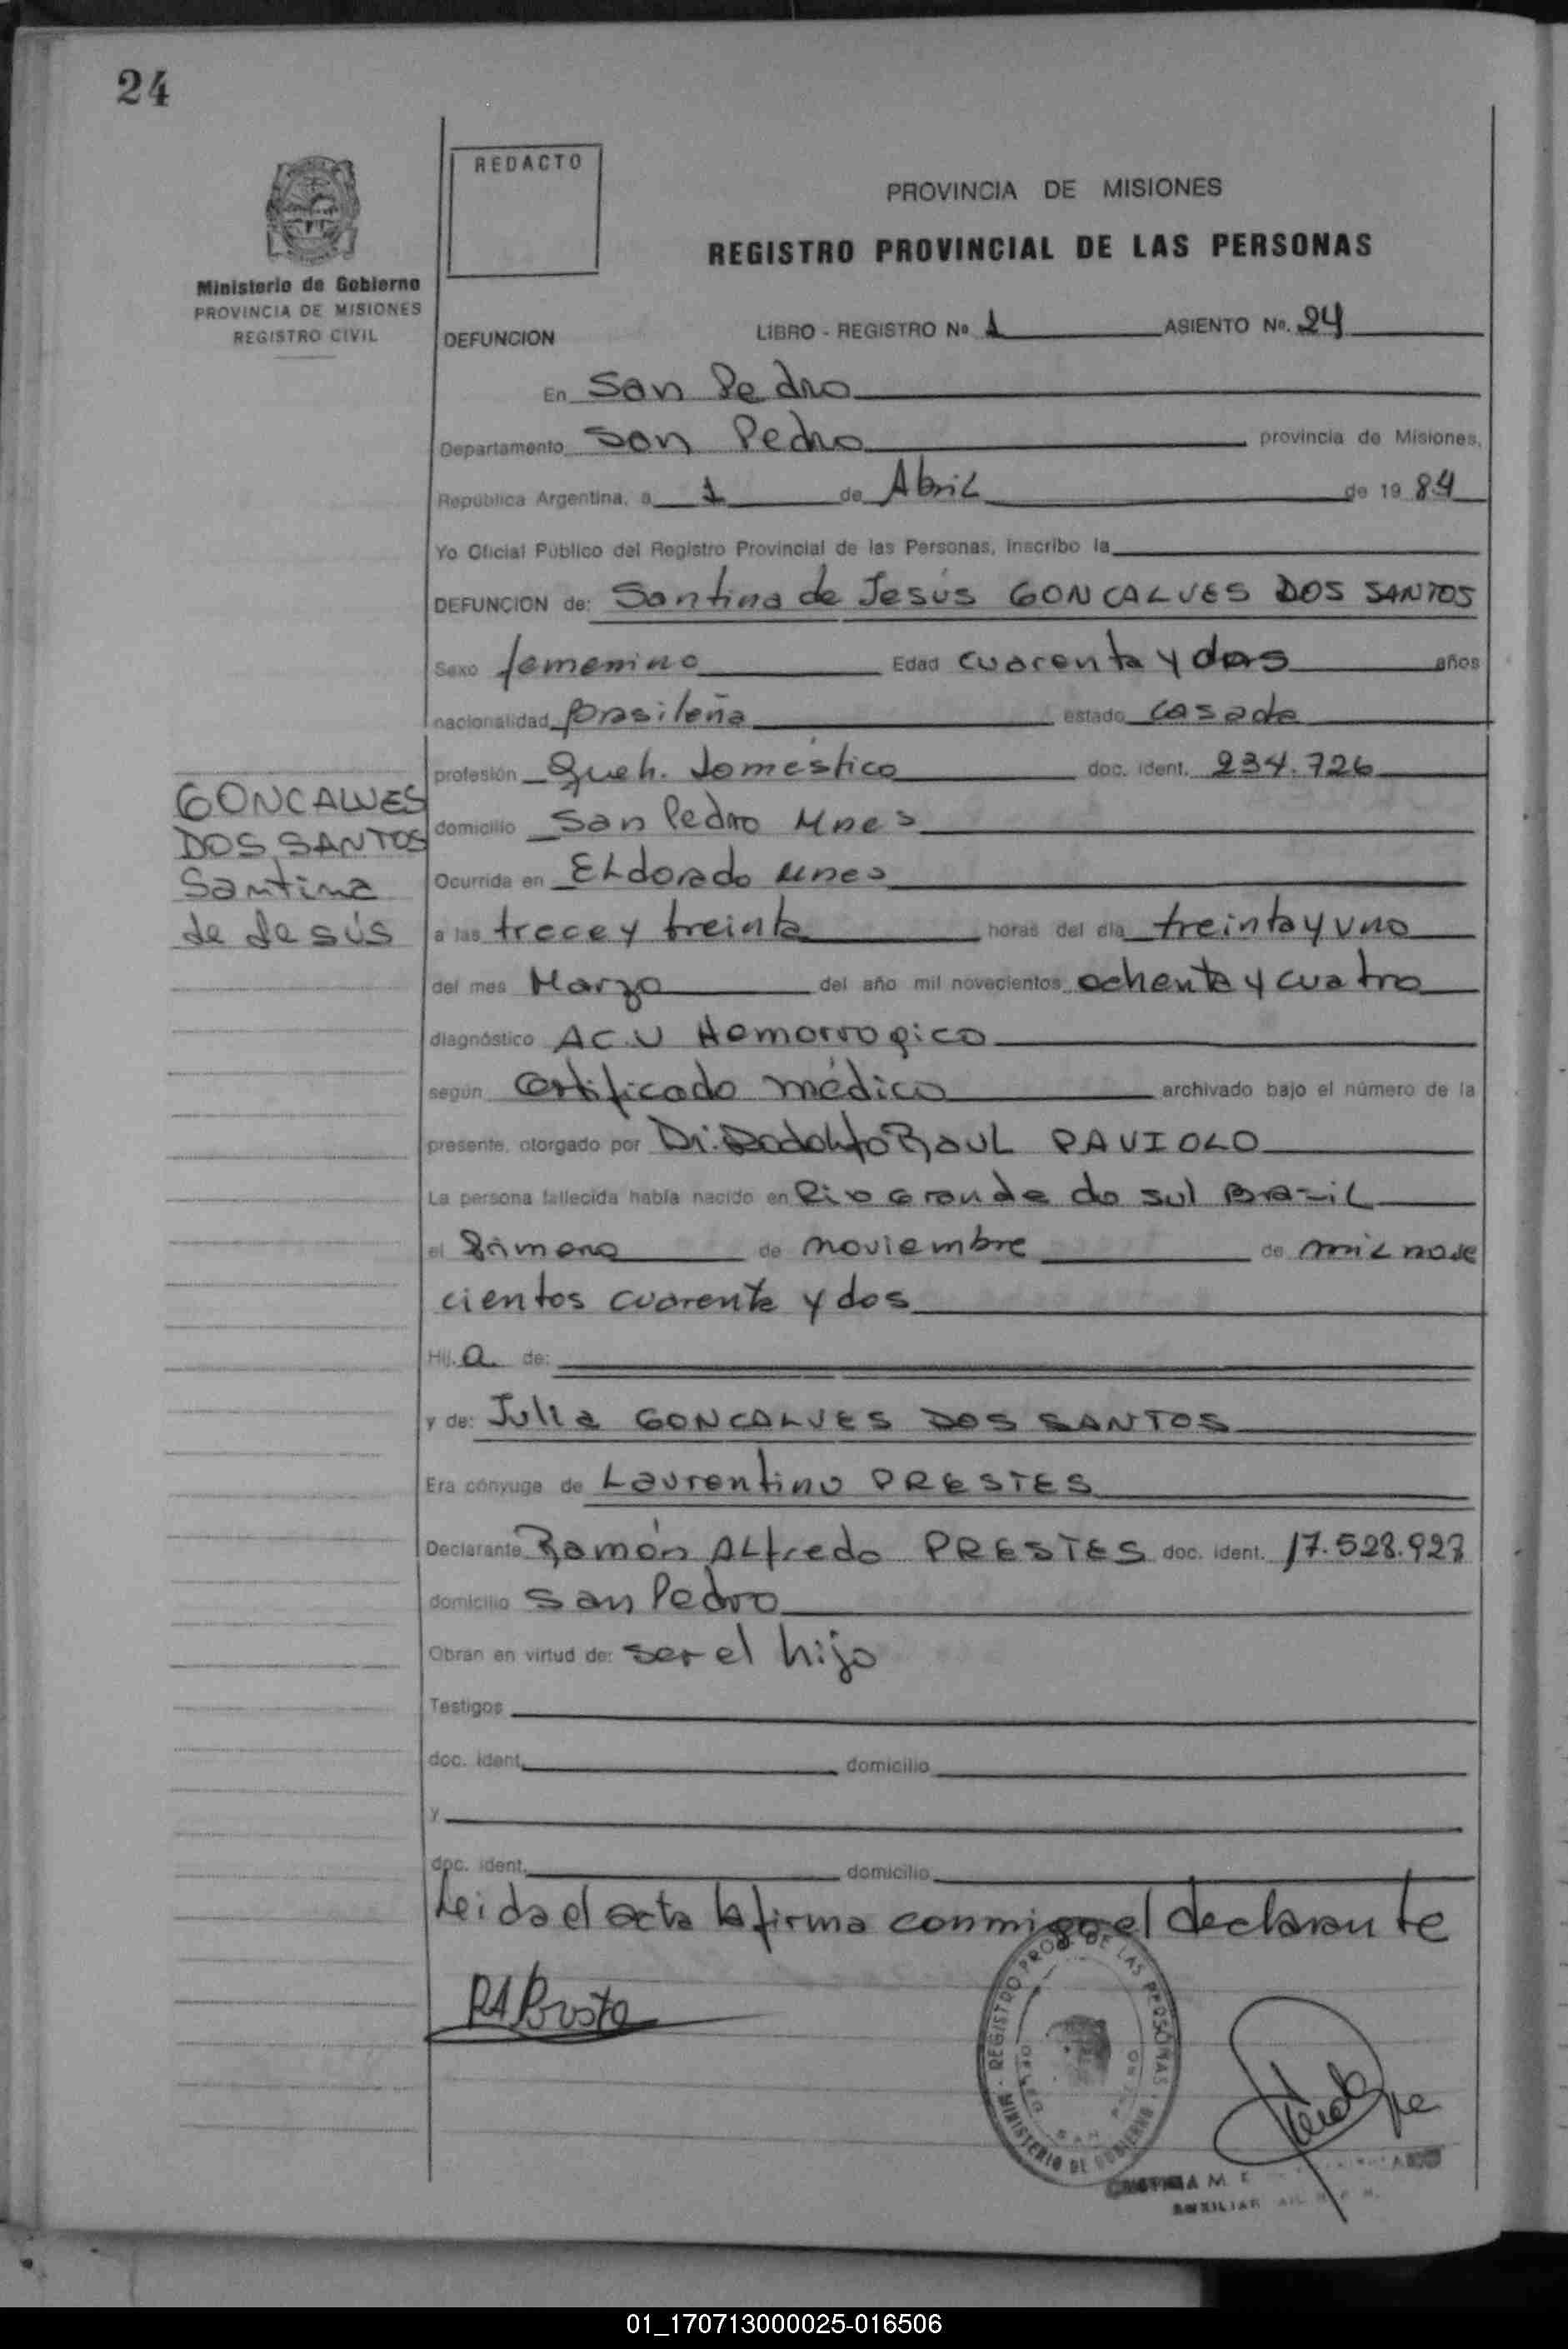 24
REDACTO
PROVINCIA DE MISIONES
REGISTRO PROVINCIAL DE LAS PERSONAS
Ministerio de Gobierno
PROVINCIA DE MISIONES
REGISTRO CIVIL
DEFUNCION LIBRO - REGISTRO Nº 1 ASIENTO Nº. 24
En San Pedro
Departamento San Pedro provincia de Misiones,
República Argentina, a 1 de Abril de 19 84
Yo Oficial Público del Registro Provincial de las Personas, inscribo la
DEFUNCION de: Santina de Jesús GONCALVES DOS SANTOS
Sexo femenino Edad cuarenta y dos años
nacionalidad brasileña estado casada
profesión Queh. doméstico doc. ident. 234.726
GONCALVES
DOS SANTOS
Santina
de Jesús
domicilio San Pedro Mnes
Ocurrida en ELdorado Mnes
a las trece y treinta horas del día treinta y uno
del mes Marzo del año mil novecientos ochenta y cuatro
diagnóstico AC.V Hemorrogico
según Certificado médico archivado bajo el número de la
presente, otorgado por Dr. Rodolfo Raul PAVIOLO
La persona fallecida había nacido en Rio Grande do sul Brazil
el Primero de noviembre de mil nove
cientos cuarenta y dos
Hij. a de:
y de: Julia GONCALVES DOS SANTOS
Era cónyuge de Laurentino PRESTES
Declarante Ramón ALfredo PRESTES doc. ident. 17.528.927
domicilio San Pedro
Obran en virtud de: ser el hijo
Testigos
doc. ident. domicilio
y
doc. ident. domicilio
Leida el acta la firma conmigo el declarante
REGISTRO PROV. DE LAS PERSONAS
MINISTERIO DE GOBIERNO
AUXILIAR
01_170713000025-016506